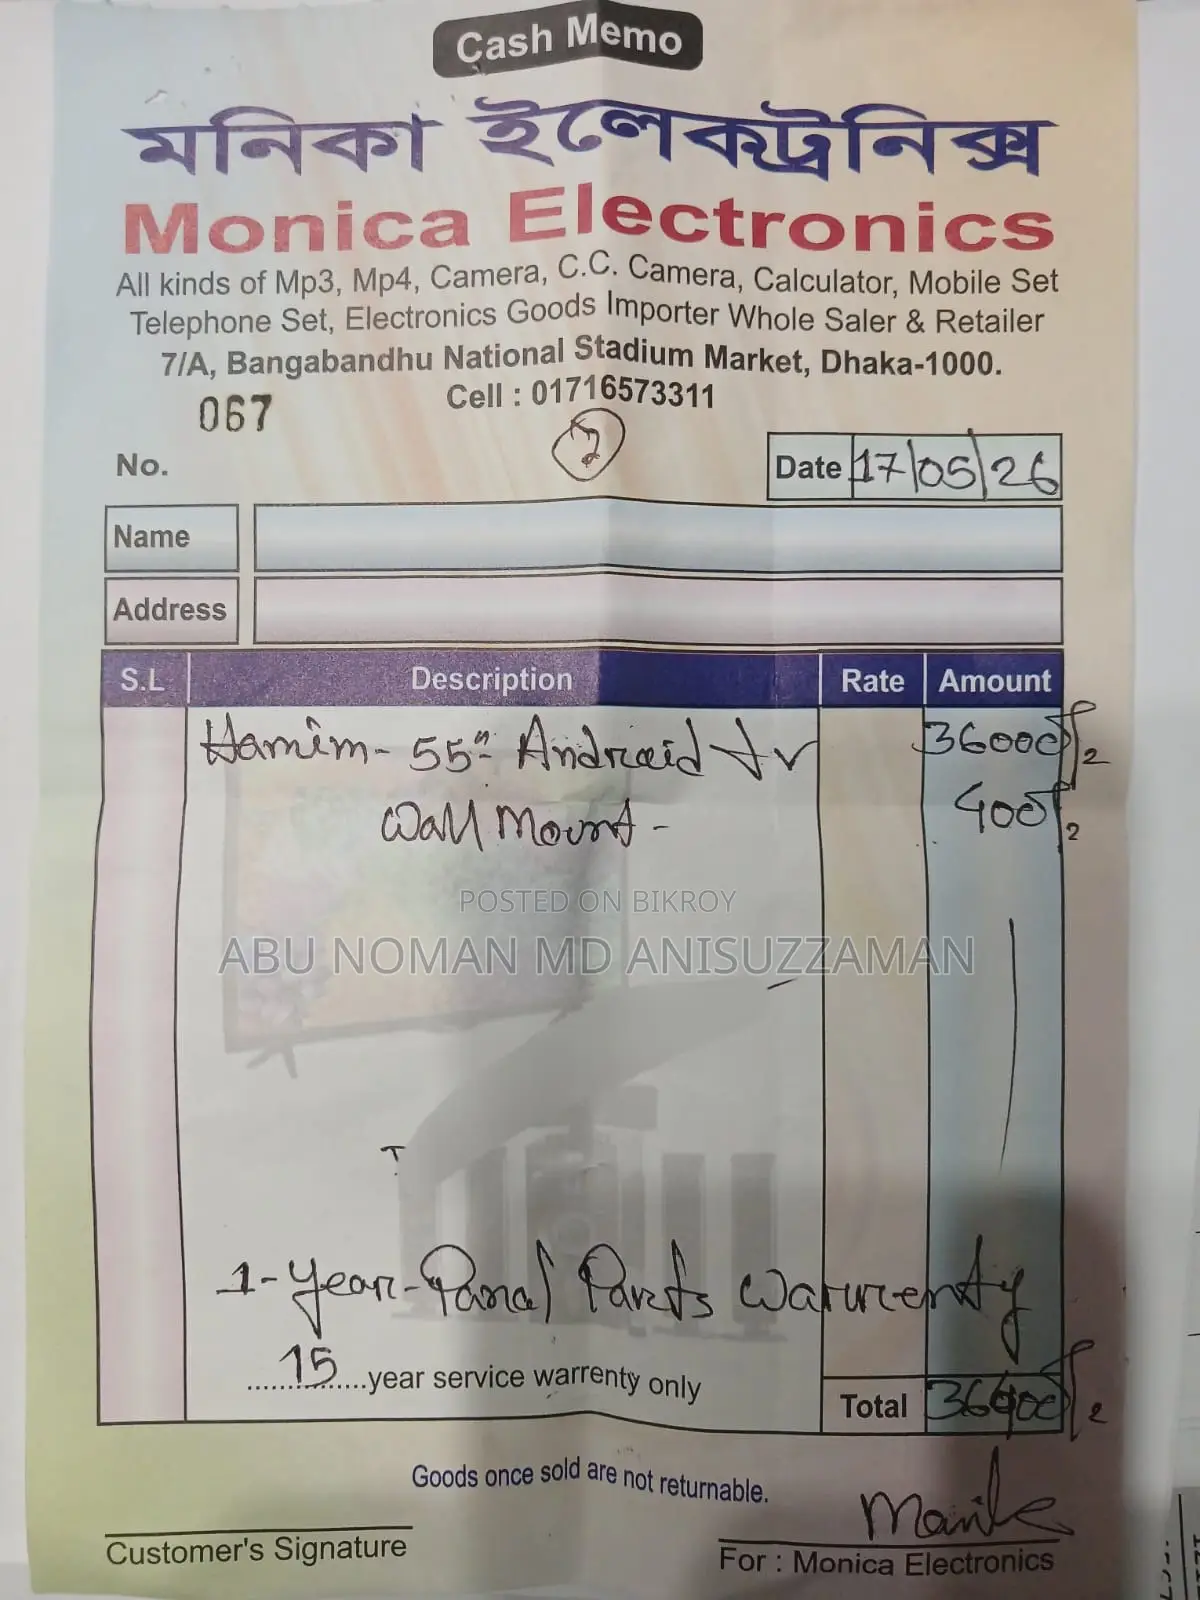 Cash Memo
মনিকা ইলেকট্রনিক্স
Monica Electronics
All kinds of Mp3, Mp4, Camera, C.C. Camera, Calculator, Mobile Set
Telephone Set, Electronics Goods Importer Whole Saler & Retailer
7/A, Bangabandhu National Stadium Market, Dhaka-1000.
Cell : 01716573311
067
No.
Date 17/05/26
Name
Address
S.L Description Rate Amount
Hamim - 55" Android tv 36000/2
Wall Mount - 400/2
POSTED ON BIKROY
ABU NOMAN MD ANISUZZAMAN
1-Year-Panal Parts Warrenty
15 year service warrenty only
Total 36400/2
Goods once sold are not returnable.
Customer's Signature
For : Monica Electronics